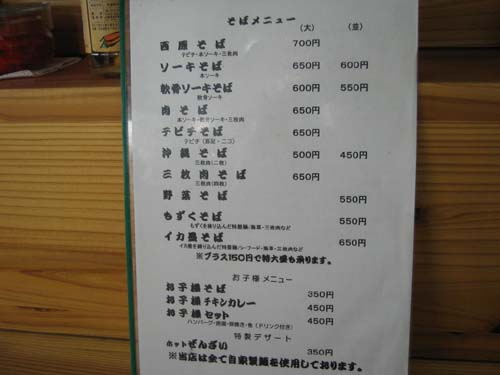 そばメニュー
(大) (並)
西原そば 700円
テビチ・本ソーキ・三枚肉
ソーキそば 650円 600円
本ソーキ
軟骨ソーキそば 600円 550円
軟骨ソーキ
肉そば 650円
本ソーキ・軟骨ソーキ・三枚肉
テビチそば 650円
沖縄そば 500円 450円
三枚肉(二枚)
三枚肉そば 650円
三枚肉(四枚)
野菜そば 550円
もずくそば 550円
もずくを練り込んだ特製麺/海草・三枚肉など
イカ墨そば 650円
イカ墨を練り込んだ特製麺/シーフード・海草・三枚肉など
※プラス150円で特大盛も承ります。
お子様メニュー
お子様そば 350円
お子様チキンカレー 450円
お子様セット 450円
特製デザート
ホットぜんざい 350円
※当店は全て自家製麺を使用しております。